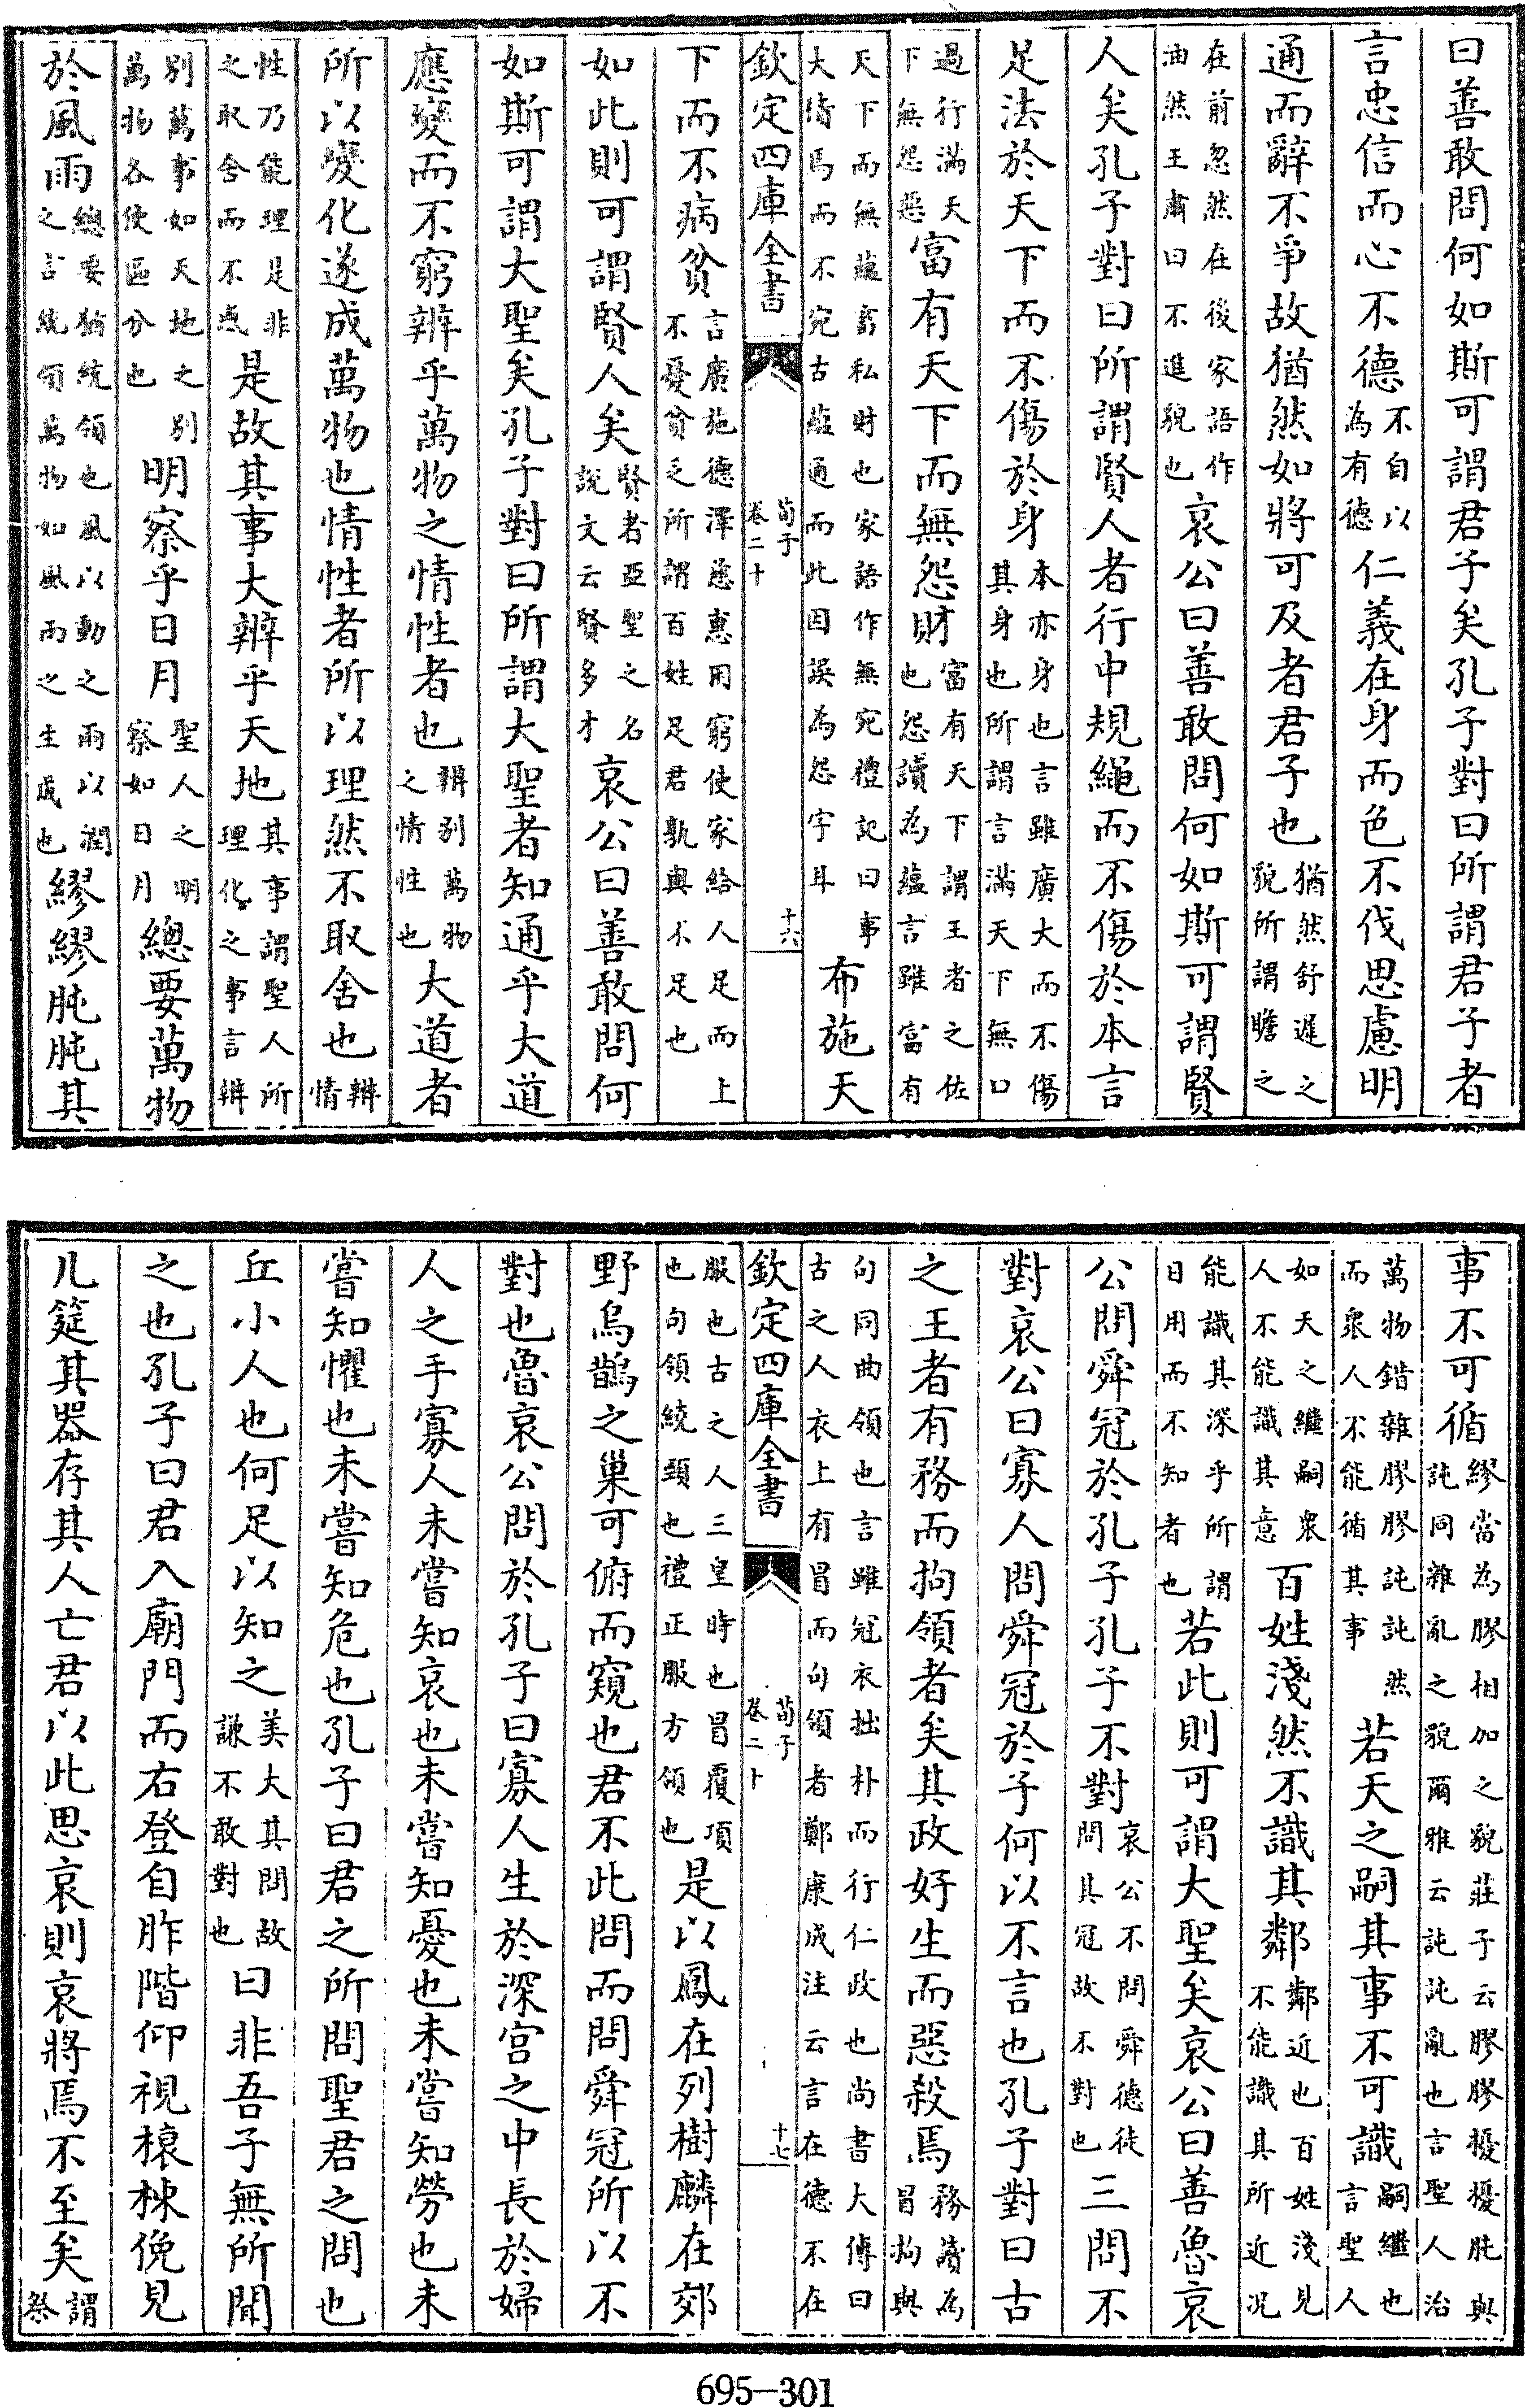 曰善敢問何如斯可謂君子矣孔子對曰所謂君子者
言忠信而心不德不自以為有德仁義在身而色不伐思慮明
通而辭不爭故猶然如將可及者君子也猶然舒遲之貌所謂瞻之
在前忽然在後家語作油然王肅曰不進貌也哀公曰善敢問何如斯可謂賢
人矣孔子對曰所謂賢人者行中規繩而不傷於本言
足法於天下而不傷於身本亦身也言雖廣大而不傷其身也所謂言滿天下無口
過行滿天下無怨惡富有天下而無怨財富有天下謂王者之佐也怨讀為蘊言雖富有
天下而無蘊畜私財也家語作無宛禮記曰事大積焉而不宛古蘊通而此因誤為怨字耳布施天
欽定四庫全書 荀子 卷二十 十六
下而不病貧言廣施德澤慈惠用窮使家給人足而上不憂貧乏所謂百姓足君孰與不足也
如此則可謂賢人矣賢者亞聖之名說文云賢多才哀公曰善敢問何
如斯可謂大聖矣孔子對曰所謂大聖者知通乎大道
應變而不窮辨乎萬物之情性者也辨別萬物之情性也大道者
所以變化遂成萬物也情性者所以理然不取舍也辨情
性乃能理是非之取舍而不惑是故其事大辨乎天地其事謂聖人所理化之事言辨
別萬事如天地之別萬物各使區分也明察乎日月聖人之明察如日月總要萬物
於風雨總要猶統領也風以動之雨以潤之言統領萬物如風雨之生成也繆繆肫肫其
事不可循繆當為膠相加之貌莊子云膠膠擾擾肫與訰同雜亂之貌爾雅云訰訰亂也言聖人治
萬物錯雜膠膠訰訰然而衆人不能循其事若天之嗣其事不可識嗣繼也言聖人
如天之繼嗣衆人不能識其意百姓淺然不識其鄰鄰近也百姓淺見不能識其所近况
能識其深乎所謂日用而不知者也若此則可謂大聖矣哀公曰善魯哀
公問舜冠於孔子孔子不對哀公不問舜德徒問其冠故不對也三問不
對哀公曰寡人問舜冠於子何以不言也孔子對曰古
之王者有務而拘領者矣其政好生而惡殺焉務讀為冒拘與
句同曲領也言雖冠衣拙朴而行仁政也尚書大傅曰古之人衣上有冒而句領者鄭康成注云言在德不在
欽定四庫全書 荀子 卷二十 十七
服也古之人三皇時也冒覆項也句領繞頸也禮正服方領也是以鳳在列樹麟在郊
野烏鵲之巢可俯而窺也君不此問而問舜冠所以不
對也魯哀公問於孔子曰寡人生於深宫之中長於婦
人之手寡人未嘗知哀也未嘗知憂也未嘗知勞也未
嘗知懼也未嘗知危也孔子曰君之所問聖君之問也
丘小人也何足以知之美大其問故謙不敢對也曰非吾子無所聞
之也孔子曰君入廟門而右登自胙階仰視榱棟俛見
几筵其器存其人亡君以此思哀則哀將焉不至矣謂祭
695-301